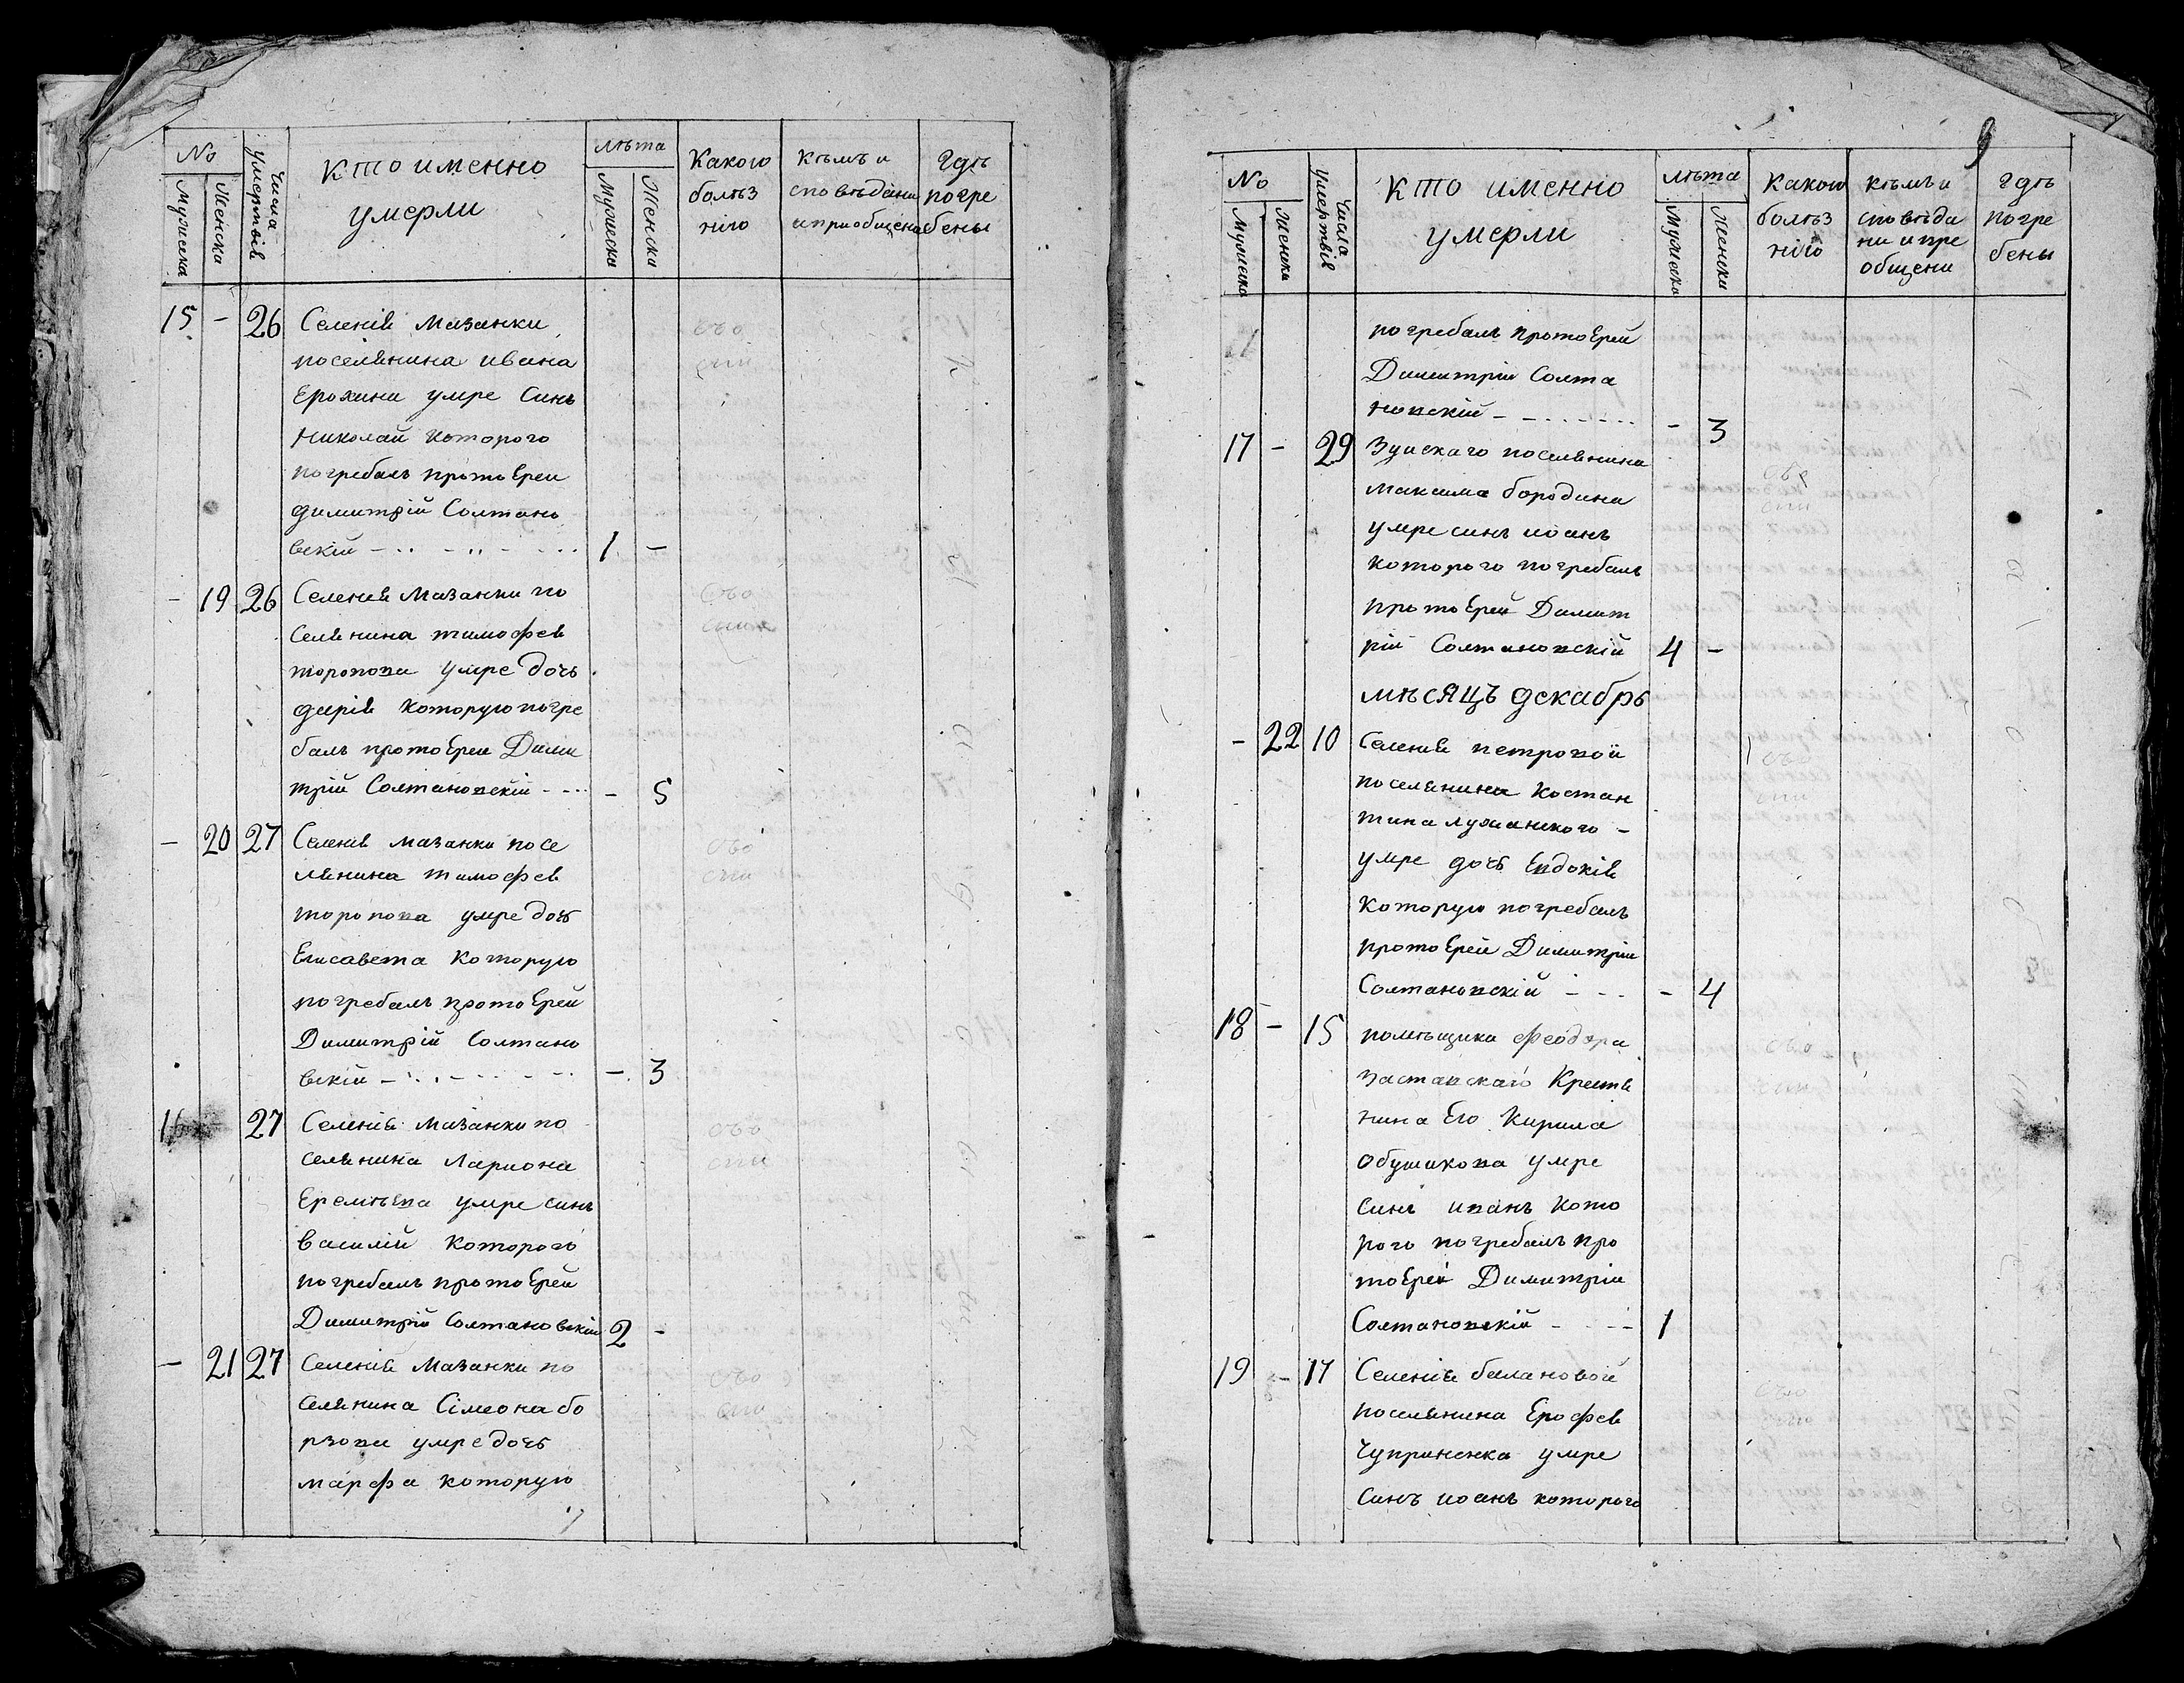 No
Мужеска
Женска
Числа умертвiя
Кто именно
умерли
лѣта
Мужеска
Женски
Какою
болѣз
нiю
Кѣмъ и
сповѣдани
и приобщени
Гдѣ
погре
бены
15 - 26 Селенія Мазанки
поселянина ивана
Ерохина умре Синъ
Николай которого
погребалъ протоЕреи
димитрій Солтано
вскій - 1 -
- 19 26 Селенія Мазанки по
селянина тимофея
торопова умре дочь
дарія которую погре
балъ протоЕреи Дими
трій Солтановскій - - 5
- 20 27 Селенія мазанки посе
лянина тимофея
торопова умре дочь
Елисавета которую
погребалъ протоЕреи
Димитрій Солтано
вскій - - 3
16 27 Селенія Мазанки по
селянина Лариона
Еремѣева умре синъ
василій которого
погребалъ протоЕреи
Димитрій Солтановскій 2 -
- 21 27 Селенія Мазанки по
селянина Сімеона бо
рзова умре дочь
марфа которую
9
No
Мужеска
Женски
Числа умертвiя
Кто именно
умерли
лѣта
Мужеска
Женски
Какою
болѣз
нiю
Кѣмъ и
сповѣда
ни и прі
общени
Гдѣ
погре
бены
погребалъ протоЕреи
Димитрій Солта
новскій - - 3
17 - 29 Зуйскаго поселянина
Максима бородина
умре синъ иоанъ
которого погребалъ
протоЕрей Димит
рій Солтановскій 4 -
мѣсяцъ декабрь
- 22 10 Селенія петровой
поселянина Костан
тина лужанского -
умре дочь Евдокія
которую погребалъ
протоЕрей Димитрій
Солтановскій - - 4
18 - 15 помѣщика феодора
Заставскаго Крестя
нина Его Кирила
Обушикова умре
Синъ иванъ кото
рого погребалъ про
тоЕрей Димитрій
Солтановскій - 1
19 - 17 Селенія балановой
поселянина Ерофея
Чуприненка умре
Синъ иоанъ которого